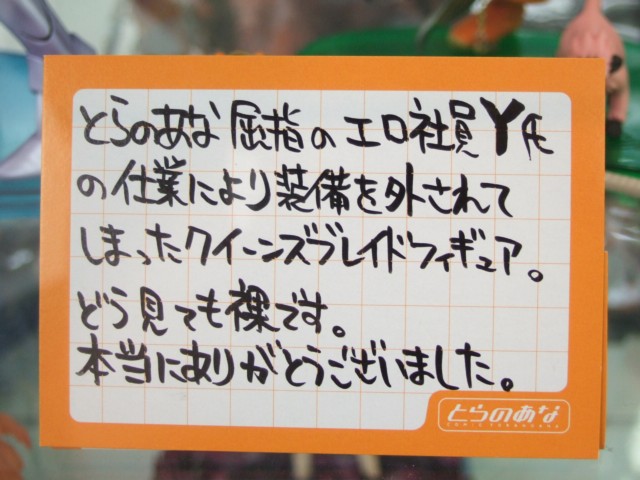 とらのあな 屈指の エロ社員Y氏
の仕業により装備を外されて
しまったクイーンズブレイドフィギュア。
どう見ても裸です。
本当にありがとうございました。
とらのあな
COMIC TORANOANA